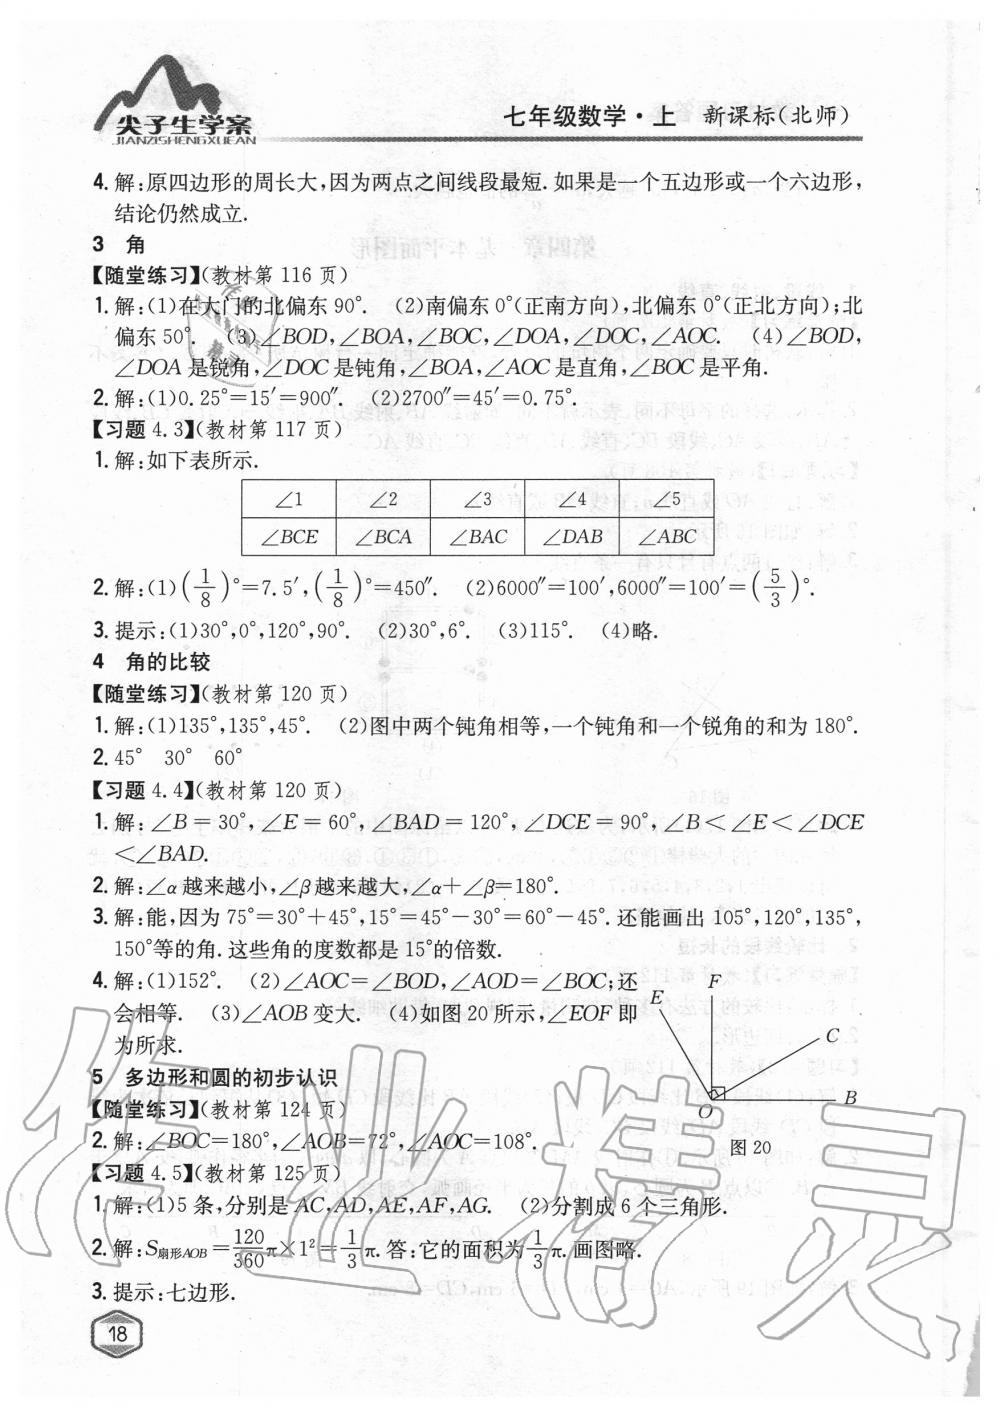 尖子生学案
JIANZISHENGXUEAN
七年级数学·上 新课标(北师)
4. 解:原四边形的周长大,因为两点之间线段最短. 如果是一个五边形或一个六边形,
结论仍然成立.
3 角
【随堂练习】(教材第 116 页)
1. 解:(1)在大门的北偏东 90°. (2)南偏东 0°(正南方向),北偏东 0°(正北方向);北
偏东 50°. (3)∠BOD,∠BOA,∠BOC,∠DOA,∠DOC,∠AOC. (4)∠BOD,
∠DOA 是锐角,∠DOC 是钝角,∠BOA,∠AOC 是直角,∠BOC 是平角.
2. 解:(1)0.25°=15′=900″. (2)2700″=45′=0.75°.
【习题 4.3】(教材第 117 页)
1. 解:如下表所示.
∠1 ∠2 ∠3 ∠4 ∠5
∠BCE ∠BCA ∠BAC ∠DAB ∠ABC
2. 解:(1)(1/8)°=7.5′,(1/8)°=450″. (2)6000″=100′,6000″=100′=(5/3)°.
3. 提示:(1)30°,0°,120°,90°. (2)30°,6°. (3)115°. (4)略.
4 角的比较
【随堂练习】(教材第 120 页)
1. 解:(1)135°,135°,45°. (2)图中两个钝角相等,一个钝角和一个锐角的和为 180°.
2. 45° 30° 60°
【习题 4.4】(教材第 120 页)
1. 解:∠B=30°,∠E=60°,∠BAD=120°,∠DCE=90°,∠B<∠E<∠DCE
<∠BAD.
2. 解:∠α越来越小,∠β越来越大,∠α+∠β=180°.
3. 解:能,因为 75°=30°+45°,15°=45°-30°=60°-45°. 还能画出 105°,120°,135°,
150°等的角. 这些角的度数都是 15°的倍数.
4. 解:(1)152°. (2)∠AOC=∠BOD,∠AOD=∠BOC;还
会相等. (3)∠AOB 变大. (4)如图 20 所示,∠EOF 即
为所求.
E
F
C
O
B
图 20
5 多边形和圆的初步认识
【随堂练习】(教材第 124 页)
2. 解:∠BOC=180°,∠AOB=72°,∠AOC=108°.
【习题 4.5】(教材第 125 页)
1. 解:(1)5 条,分别是 AC,AD,AE,AF,AG. (2)分割成 6 个三角形.
2. 解:S扇形AOB=120/360π×1²=1/3π. 答:它的面积为1/3π. 画图略.
3. 提示:七边形.
18
作业精灵